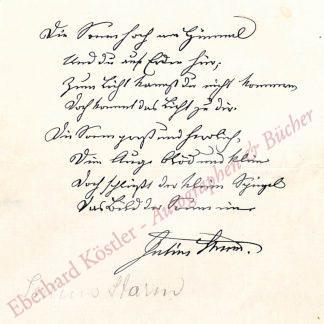 Die Sonne hoch am Himmel
Und du auf Erden hier;
Zum Licht kannst du nicht kommen
Doch kommt das Licht zu dir.
Die Sonne groß und herrlich,
Dein Auge blöd und klein
Doch schließt der kleine Spiegel
Das Bild der Sonne ein.
Julius Sturm.
Julius Sturm
Eberhard Köstler - Autographen & Bücher